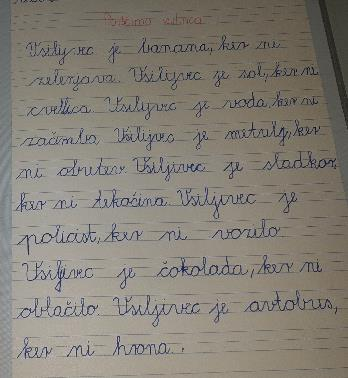 Poiščimo vsiljivca
Vsiljivec je banana, ker ni
zelenjava. Vsiljivec je sol, ker ni
cvetlica. Vsiljivec je voda, ker ni
začimba. Vsiljivec je metulj, ker
ni obutev. Vsiljivec je sladkor,
ker ni tekočina. Vsiljivec je
policist, ker ni vozilo.
Vsiljivec je čokolada, ker ni
oblačilo. Vsiljivec je avtobus,
ker ni hrana.